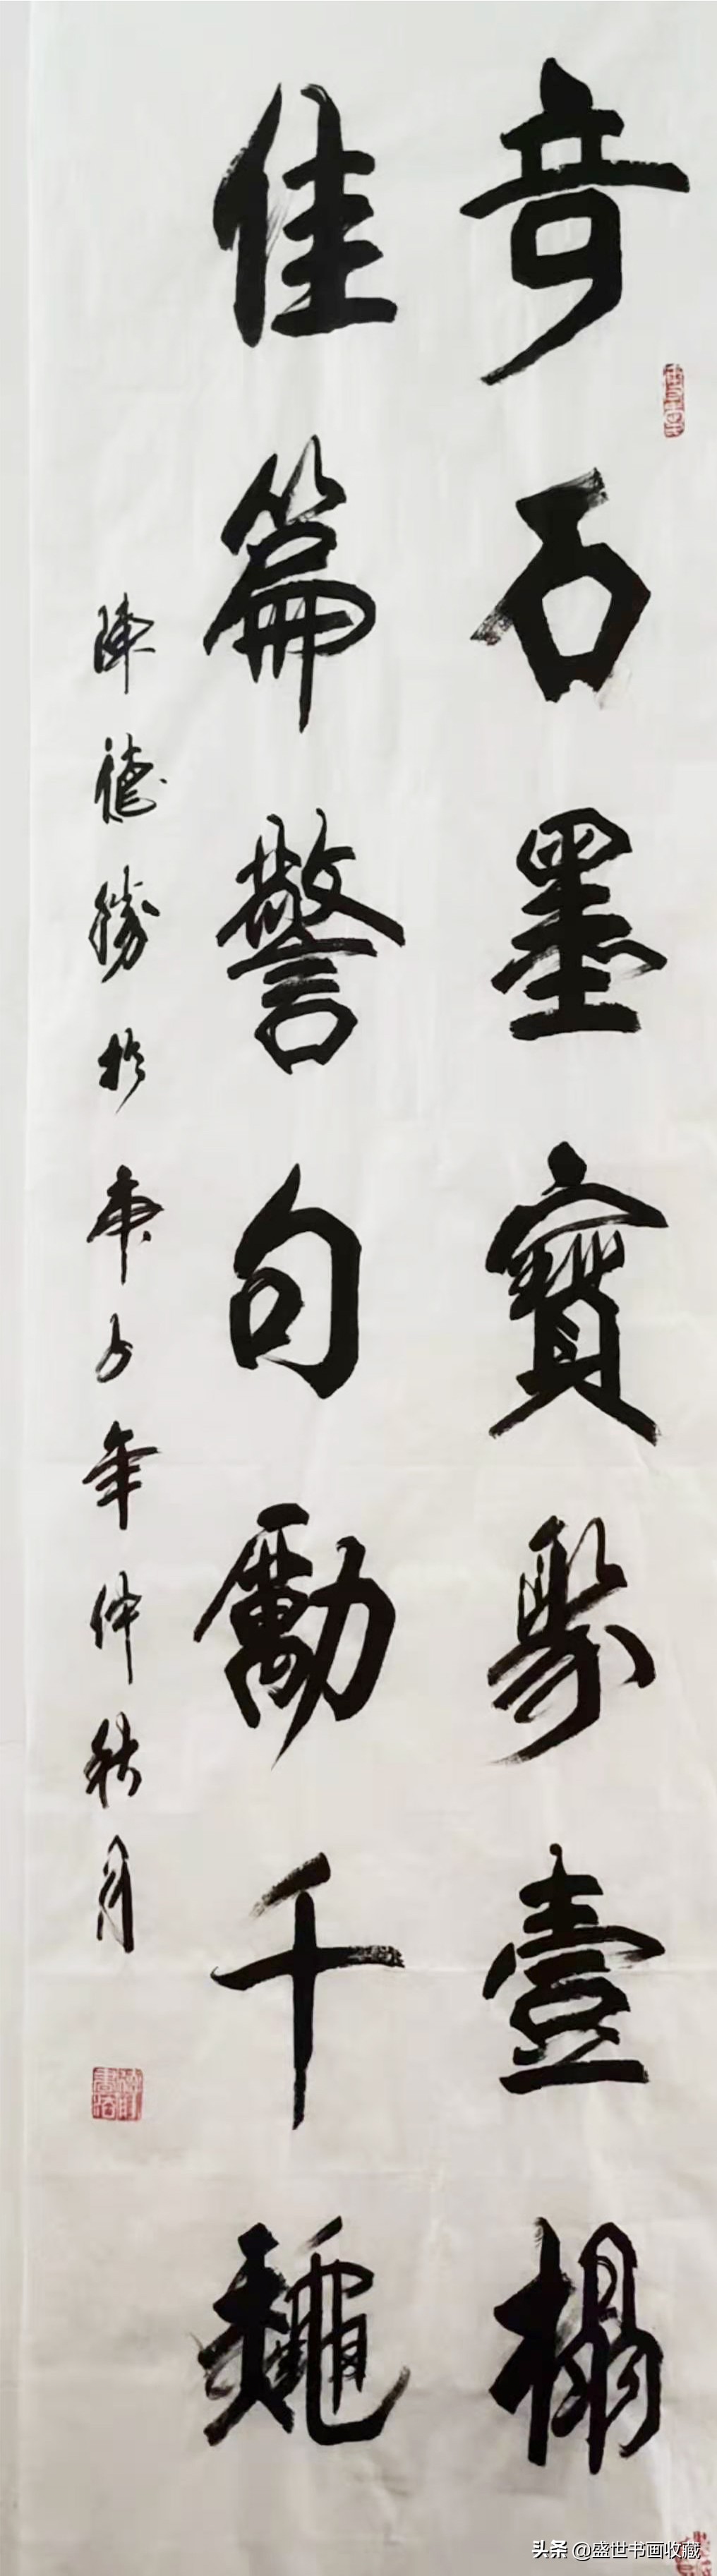 奇石墨寶聚壹榻
佳篇警句勵千
陳德勝於庚子年仲秋月
头条 @盛世书画收藏